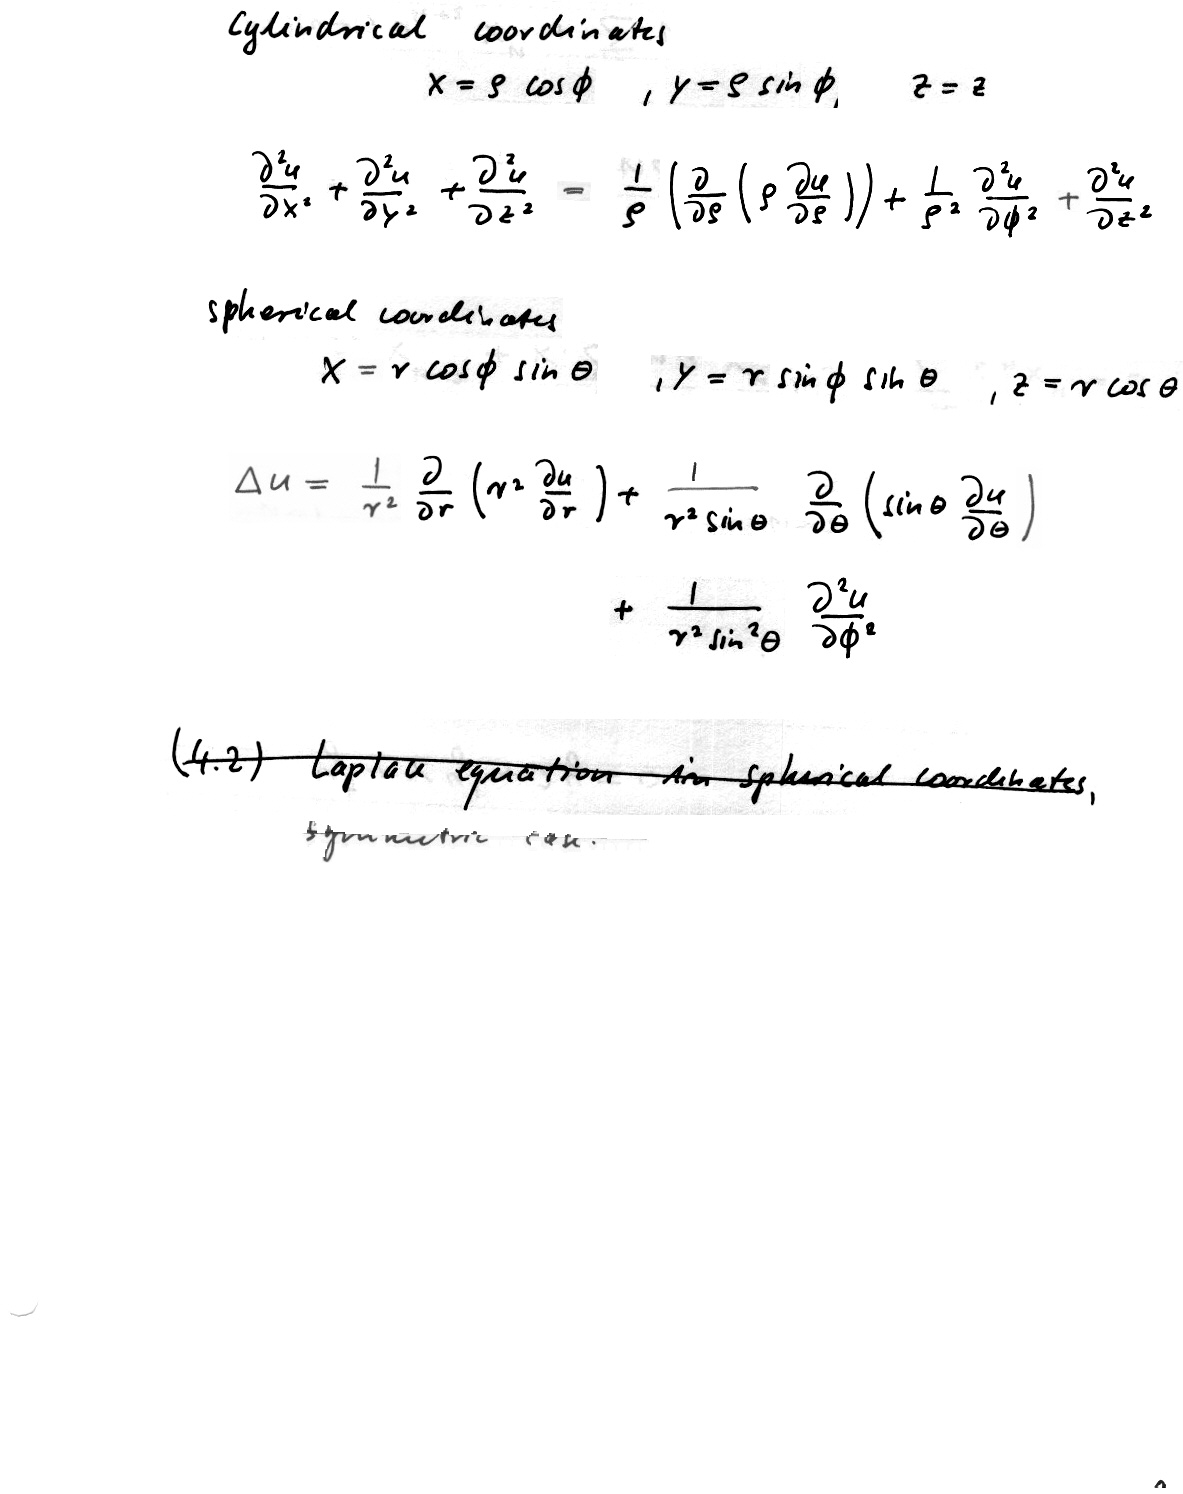 Cylindrical coordinates
x = ρ cosϕ , y = ρ sin ϕ, z = z
∂²u/∂x² + ∂²u/∂y² + ∂²u/∂z² = 1/ρ (∂/∂ρ (ρ ∂u/∂ρ)) + 1/ρ² ∂²u/∂ϕ² + ∂²u/∂z²
spherical coordinates
x = r cosϕ sin θ , y = r sin ϕ sin θ , z = r cos θ
Δu = 1/r² ∂/∂r (r² ∂u/∂r) + 1/(r² sin θ) ∂/∂θ (sin θ ∂u/∂θ)
+ 1/(r² sin²θ) ∂²u/∂ϕ²
(4.2) Laplace equation in spherical coordinates,
symmetric case.